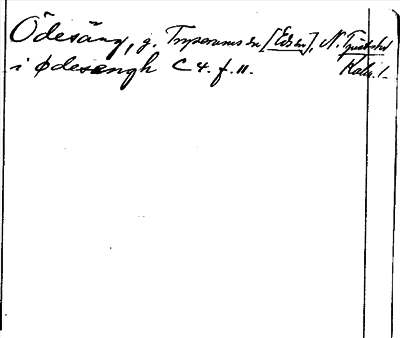 Ödesäng, g. Tryserums sn [Eds sn], N. Tjust hd
i Ødesengh C 4. f. 11. Kalm. l.